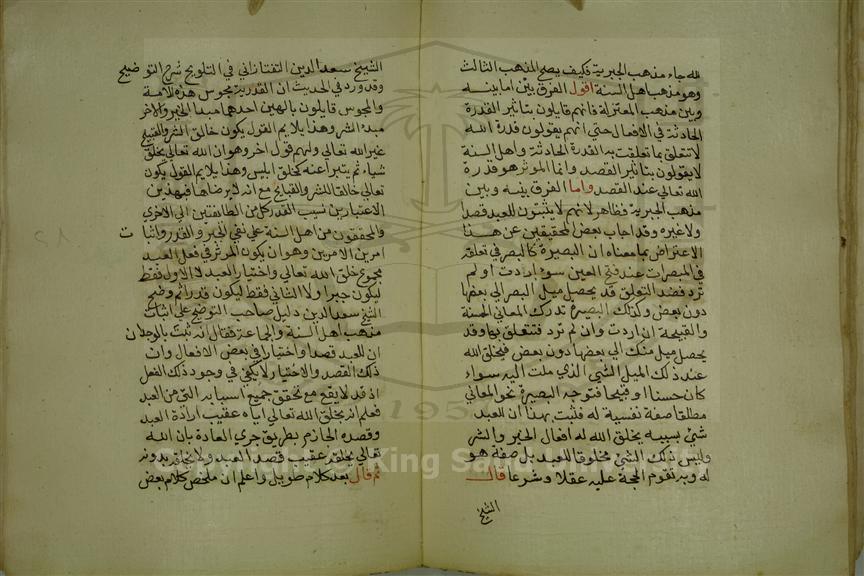 لله جاء مذهب الجبرية فكيف يصح المذهب الثالث
وهو مذهب اهل السنة اقول الفرق بين اما بينه
وبين مذهب المعتزلة فانهم قايلون بتاثير القدرة
الحادثة في الافعال حتى انهم يقولون قدرة الله
لا تتعلق بما تعلقت به القدرة الحادثة واهل السنة
لا يقولون بتاثير القصد وانما الموثر هو قدرة
الله تعالى عند القصد واما الفرق بينه وبين
مذهب الجبرية فظاهر لانهم لا يثبتون للعبد قصدا
ولا غيره وقد اجاب بعض المحققين عن هذا
الاعتراض بما معناه ان البصيرة كالبصر في تعلقه
في المبصرات عند فتح العين سواء اردت او لم
ترد فضد التعلق قد يحصل ميل البصر الى بعضها
دون بعض وكذلك البصيرة تدرك المعاني الحسنة
والقبيحة ان اردت وان لم ترد فتتعلق بها وقد
يحصل ميل منك الى بعضها دون بعض فيخلق الله
عند ذلك الميل الشي الذي ملت اليه سواء
كان حسنا او قبيحا فتوجه البصيرة نحو المعاني
مطلقا صفة نفسية له فثبت بهذا ان للعبد
شي بسببه يخلق الله له افعال الخير والشر
وليس ذلك الشي مخلوقا للعبد بل صفة هو
له وبه تقوم الحجة عليه عقلا وشرعا قال
الشيخ
الشيخ سعد الدين التفتازاني في التلويح شرح التوضيح
وقد ورد في الحديث ان القدرية مجوس هذه الامة
والمجوس قايلون بالهين احدهما مبدا الخير والاخر
مبدء الشر وهذا يلايم القول بكون خالق الشر والقبيح
غير الله تعالى ولهم قول اخر وهو ان الله تعالى يخلق
شياء ثم يتبراعنه كخلق ابليس وهذا يلايم القول بكون
تعالى خالقا للشر والقبايح مع انه لا يرضاها فبهذين
الاعتبارين نسب القدر كل من الطائفتين الى الاخرى
والمحققون من اهل السنة على نفي الجبر والقدر واثبات
امر بين الامرين وهو ان يكون الموثر في فعل العبد
مجموع خلق الله تعالى واختيار العبد لا الاول فقط
ليكون جبرا ولا الثاني فقط ليكون قدرا ثم وضح
الشيخ سعد الدين دليل صاحب التوضيح على اثبات
مذهب اهل السنة والجماعة فقال انه ثبت بالوجدان
ان للعبد قصدا واختيارا في بعض الافعال وان
ذلك القصد والاختيار لا يكفي في وجود ذلك الفعل
اذ قد لا يقع مع تحقق جميع اسبابه التي من العبد
فعلم انه يخلق الله تعالى اياه عقيب ارادة العبد
وقصده الجازم بطريق جري العادة بان الله
تعالى يخلقه عقيب قصد العبد ولا يخلقه بدونه
ثم قال بعد كلام طويل واعلم ان ملخص كلام بعض
Copyright © King Saud University
195